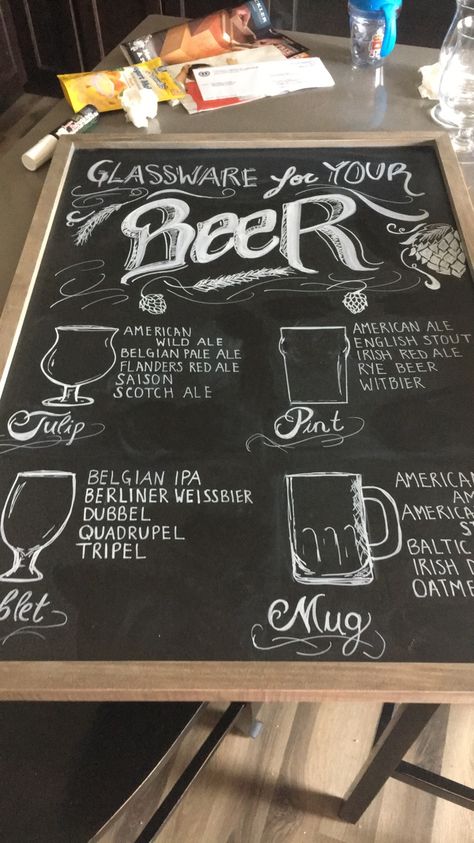 GLASSWARE for YOUR
BEER
AMERICAN
WILD ALE
BELGIAN PALE ALE
FLANDERS RED ALE
SAISON
SCOTCH ALE
Tulip
AMERICAN ALE
ENGLISH STOUT
IRISH RED ALE
RYE BEER
WITBIER
Pint
BELGIAN IPA
BERLINER WEISSBIER
DUBBEL
QUADRUPEL
TRIPEL
blet
AMERICAN
AM
AMERICA
S
BALTIC
IRISH D
OATME
Mug